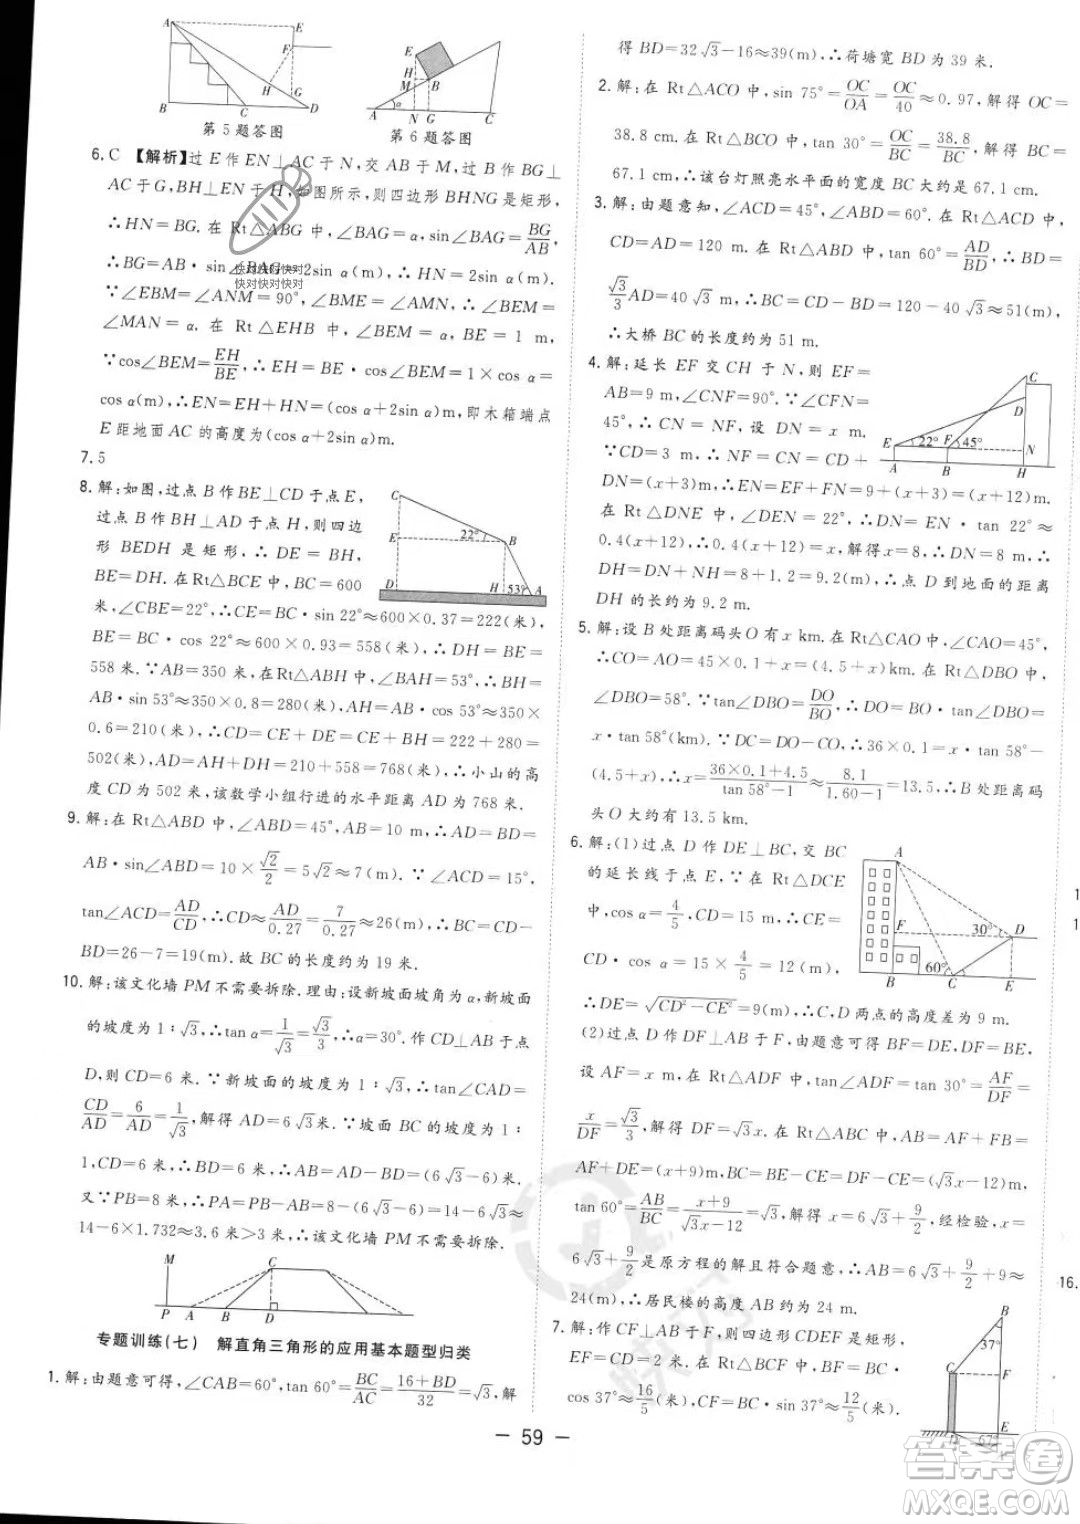 第5题答图
第6题答图
6.C 【解析】过 E 作 EN⊥AC 于 N,交 AB 于 M,过 B 作 BG⊥
AC 于 G,BH⊥EN 于 H,如图所示,则四边形 BHNG 是矩形,
∴HN=BG. 在 Rt△ABG 中,∠BAG=α,sin∠BAG=BG/AB,
∴BG=AB·sin∠BAG=2sin α(m),∴HN=2sin α(m).
∵∠EBM=∠ANM=90°,∠BME=∠AMN,∴∠BEM=
∠MAN=α. 在 Rt△EHB 中,∠BEM=α,BE=1 m,
∵cos∠BEM=EH/BE,∴EH=BE·cos∠BEM=1×cos α=
cos α(m),∴EN=EH+HN=(cos α+2sin α)m,即木箱端点
E 距地面 AC 的高度为(cos α+2sin α)m.
7.5
8.解:如图,过点 B 作 BE⊥CD 于点 E,
过点 B 作 BH⊥AD 于点 H,则四边
形 BEDH 是矩形,∴DE=BH,
BE=DH. 在 Rt△BCE 中,∵BC=600
米,∠CBE=22°,∴CE=BC·sin 22°≈600×0.37=222(米),
BE=BC·cos 22°≈600×0.93=558(米),∴DH=BE=
558 米. ∵AB=350 米,∴在 Rt△ABH 中,∠BAH=53°,∴BH=
AB·sin 53°≈350×0.8=280(米),AH=AB·cos 53°≈350×
0.6=210(米),∴CD=CE+DE=CE+BH=222+280=
502(米),AD=AH+DH=210+558=768(米),∴小山的高
度 CD 为 502 米,该数学小组行进的水平距离 AD 为 768 米.
9.解:在 Rt△ABD 中,∠ABD=45°,AB=10 m,∴AD=BD=
AB·sin∠ABD=10×√2/2=5√2≈7(m). ∵∠ACD=15°,
tan∠ACD=AD/CD,∴CD≈AD/0.27≈7/0.27≈26(m),∴BC=CD-
BD=26-7=19(m). 故 BC 的长度约为 19 米.
10.解:该文化墙 PM 不需要拆除. 理由:设新坡面坡角为 α,新坡面
的坡度为 1∶√3,∴tan α=1/√3=√3/3,∴α=30°. 作 CD⊥AB 于点
D,则 CD=6 米. ∵新坡面的坡度为 1∶√3,∴tan∠CAD=
CD/AD=6/AD=1/√3,解得 AD=6√3米. ∵坡面 BC 的坡度为 1∶
1,CD=6 米,∴BD=6 米,∴AB=AD-BD=(6√3-6)米.
又∵PB=8 米,∴PA=PB-AB=8-(6√3-6)=14-6√3≈
14-6×1.732≈3.6米>3米,∴该文化墙 PM 不需要拆除.
专题训练(七) 解直角三角形的应用基本题型归类
1.解:由题意可得,∠CAB=60°,tan 60°=BC/AC=(16+BD)/32=√3,解
得 BD=32√3-16≈39(m),∴荷塘宽 BD 为 39 米.
2.解:在 Rt△ACO 中,sin 75°=OC/OA=OC/40≈0.97,解得 OC=
38.8 cm. 在 Rt△BCO 中,tan 30°=OC/BC=38.8/BC≈√3/3,解得 BC≈
67.1 cm,∴该台灯照亮水平面的宽度 BC 大约是 67.1 cm.
3.解:由题意知,∠ACD=45°,∠ABD=60°. 在 Rt△ACD 中,
CD=AD=120 m. 在 Rt△ABD 中,tan 60°=AD/BD,∴BD=
√3/3AD=40√3 m,∴BC=CD-BD=120-40√3≈51(m).
∴大桥 BC 的长度约为 51 m.
4.解:延长 EF 交 CH 于 N,则 EF=
AB=9 m,∠CNF=90°. ∵∠CFN=
45°,∴CN=NF,设 DN=x m.
∵CD=3 m,∴NF=CN=CD+
DN=(x+3)m,∴EN=EF+FN=9+(x+3)=(x+12)m.
在 Rt△DNE 中,∠DEN=22°,∴DN=EN·tan 22°≈
0.4(x+12)m,∴0.4(x+12)=x,解得 x=8,∴DN=8 m,
DH=DN+NH=8+1.2=9.2(m),∴点 D 到地面的距离
DH 的长约为 9.2 m.
5.解:设 B 处距离码头 O 有 x km. 在 Rt△CAO 中,∠CAO=45°,
∴CO=AO=45×0.1+x=(4.5+x)km. 在 Rt△DBO 中,
∠DBO=58°. ∵tan∠DBO=DO/BO,∴DO=BO·tan∠DBO=x·
tan 58°(km). ∵DC=DO-CO,∴36×0.1=x·tan 58°-
(4.5+x),∴x=(36×0.1+4.5)/(tan 58°-1)≈8.1/(1.60-1)=13.5,∴B 处距离码
头 O 大约有 13.5 km.
6.解:(1)过点 D 作 DE⊥BC,交 BC
的延长线于点 E,∵在 Rt△DCE
中,cos α=4/5,CD=15 m,∴CE=
CD·cos α=15×4/5=12(m),
∴DE=√(CD²-CE²)=9(m),∴C,D 两点的高度差为 9 m.
(2)过点 D 作 DF⊥AB 于 F,由题意可得 BF=DE,DF=BE,
设 AF=x m,在 Rt△ADF 中,tan∠ADF=tan 30°=AF/DF=
x/DF=√3/3,解得 DF=√3x. 在 Rt△ABC 中,AB=AF+FB=
AF+DE=(x+9)m,BC=BE-CE=DF-CE=(√3x-12)m,
tan 60°=AB/BC=(x+9)/(√3x-12)=√3,解得 x=6√3+9/2,经检验,x=
6√3+9/2是原方程的解且符合题意,∴AB=6√3+9/2+9≈
24(m),∴居民楼的高度 AB 约为 24 米.
7.解:作 CF⊥AB,由题意知四边形 CDEF 是矩形,
∴CD=EF,CF=DE,在 Rt△BCF 中,BF=BC·
cos 37°≈16/5(米),CF=BC·sin 37°≈12/5(米).
— 59 —
快对快对快对
快对快对快对
快对
答案圈
MXQE.COM